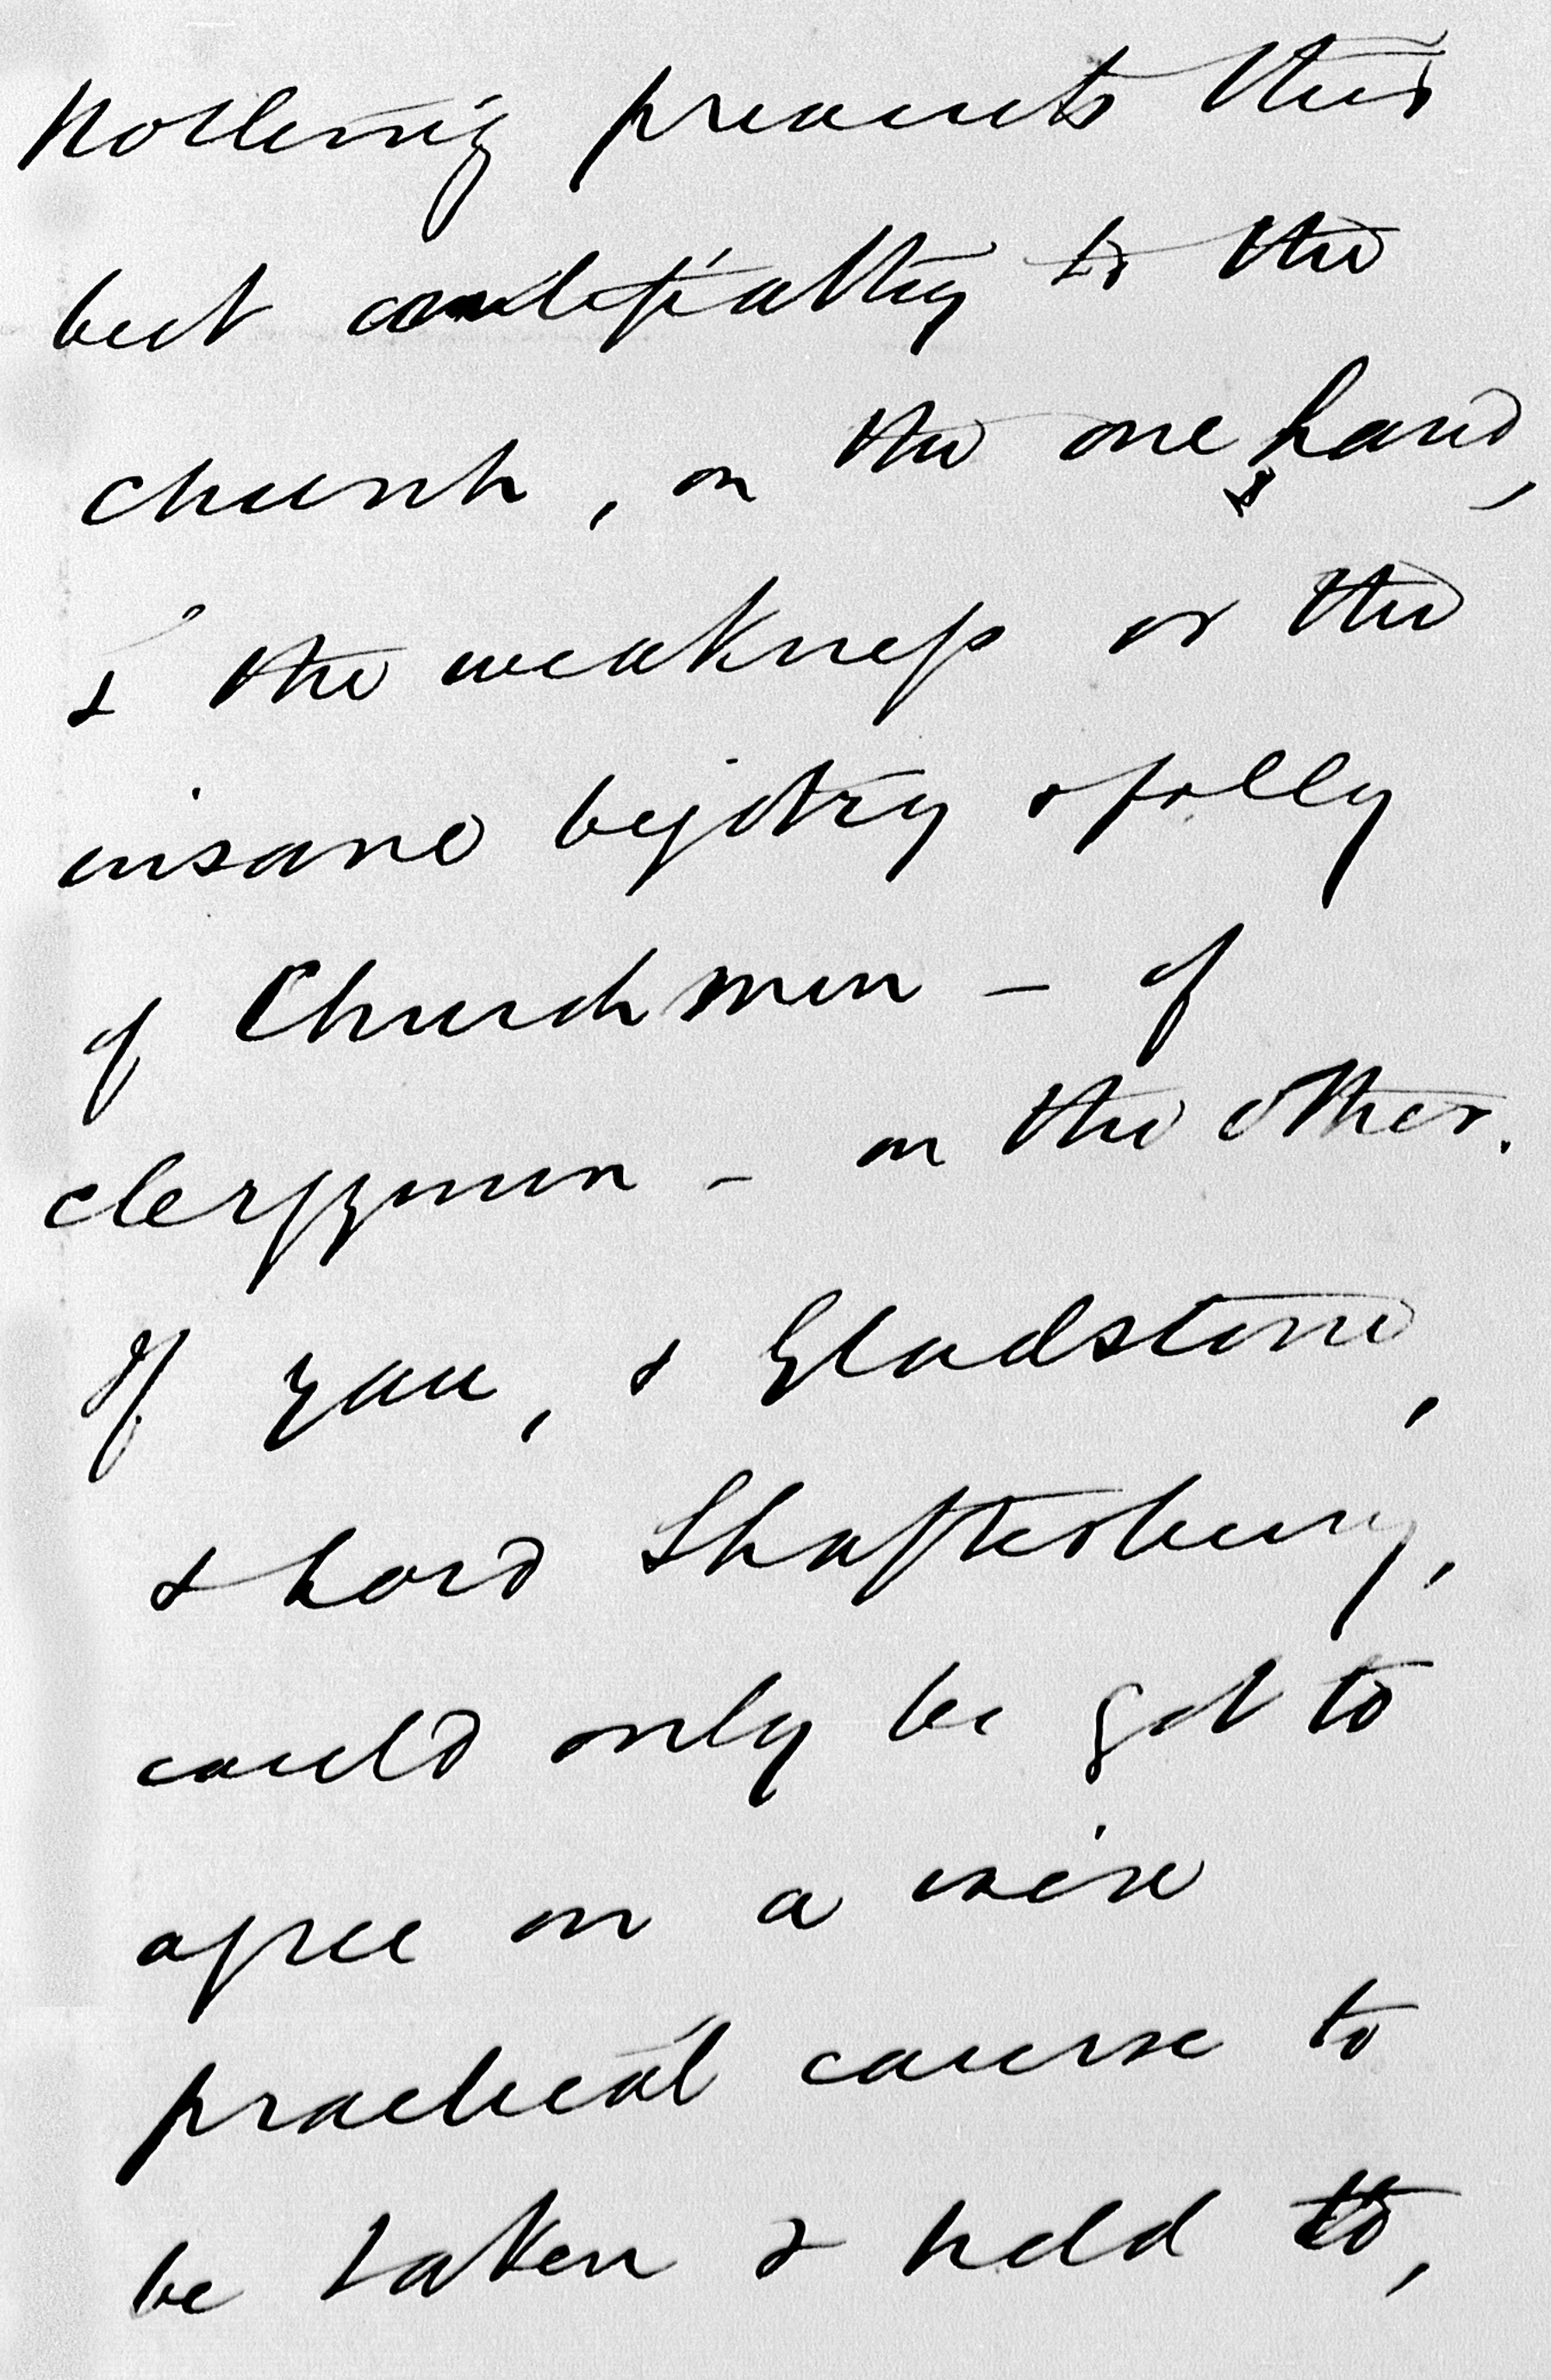 Nothing prevents this
but antipathy to the
church, on the one hand,
& the weakness or the
insane bigotry & folly
of Churchmen – of
clergymen – on the other.
If you, & Gladstone,
& Lord Shaftesbury,
could only be got to
agree on a wise
practical course to
be taken & held to,